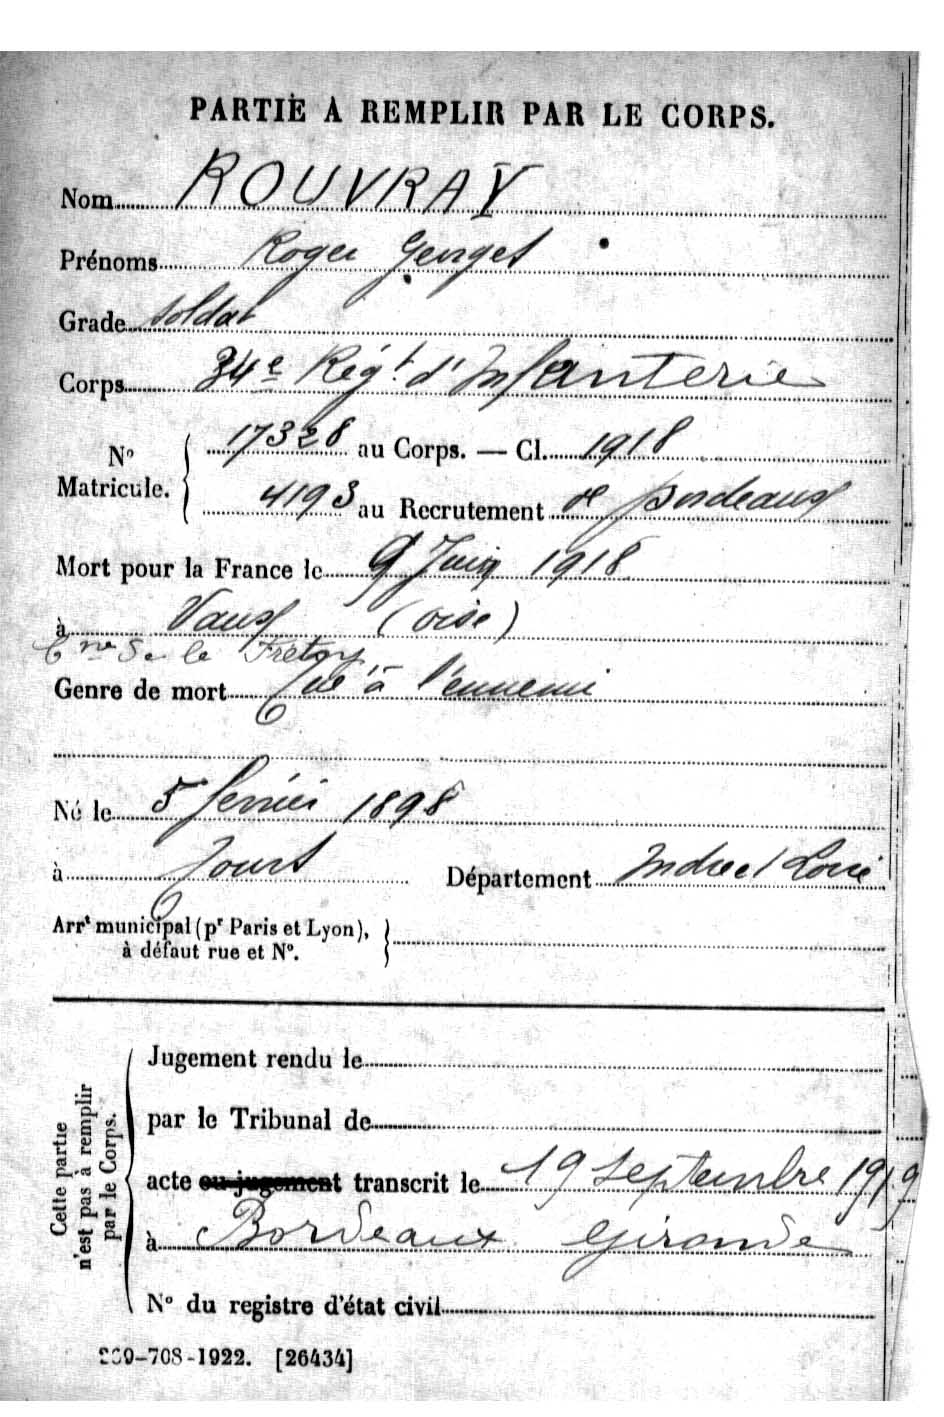 PARTIE A REMPLIR PAR LE CORPS.
Nom ROUVRAY
Prénoms Roger Georges
Grade Soldat
Corps 34e Régt. d'Infanterie
N° Matricule. { 17328 au Corps. — Cl. 1918
4193 au Recrutement de Bordeaux
Mort pour la France le 9 Juin 1918
à Vaux (Oise)
Cne de le Frétoy
Genre de mort Tué à l'ennemi
Né le 5 février 1898
à Tours Département Indre et Loire
Arrt municipal (pr Paris et Lyon), }
à défaut rue et N°.
Cette partie
n'est pas à remplir
par le Corps.
Jugement rendu le
par le Tribunal de
acte ou jugement transcrit le 19 Septembre 1919
à Bordeaux Gironde
N° du registre d'état civil
-708-1922. [26434]